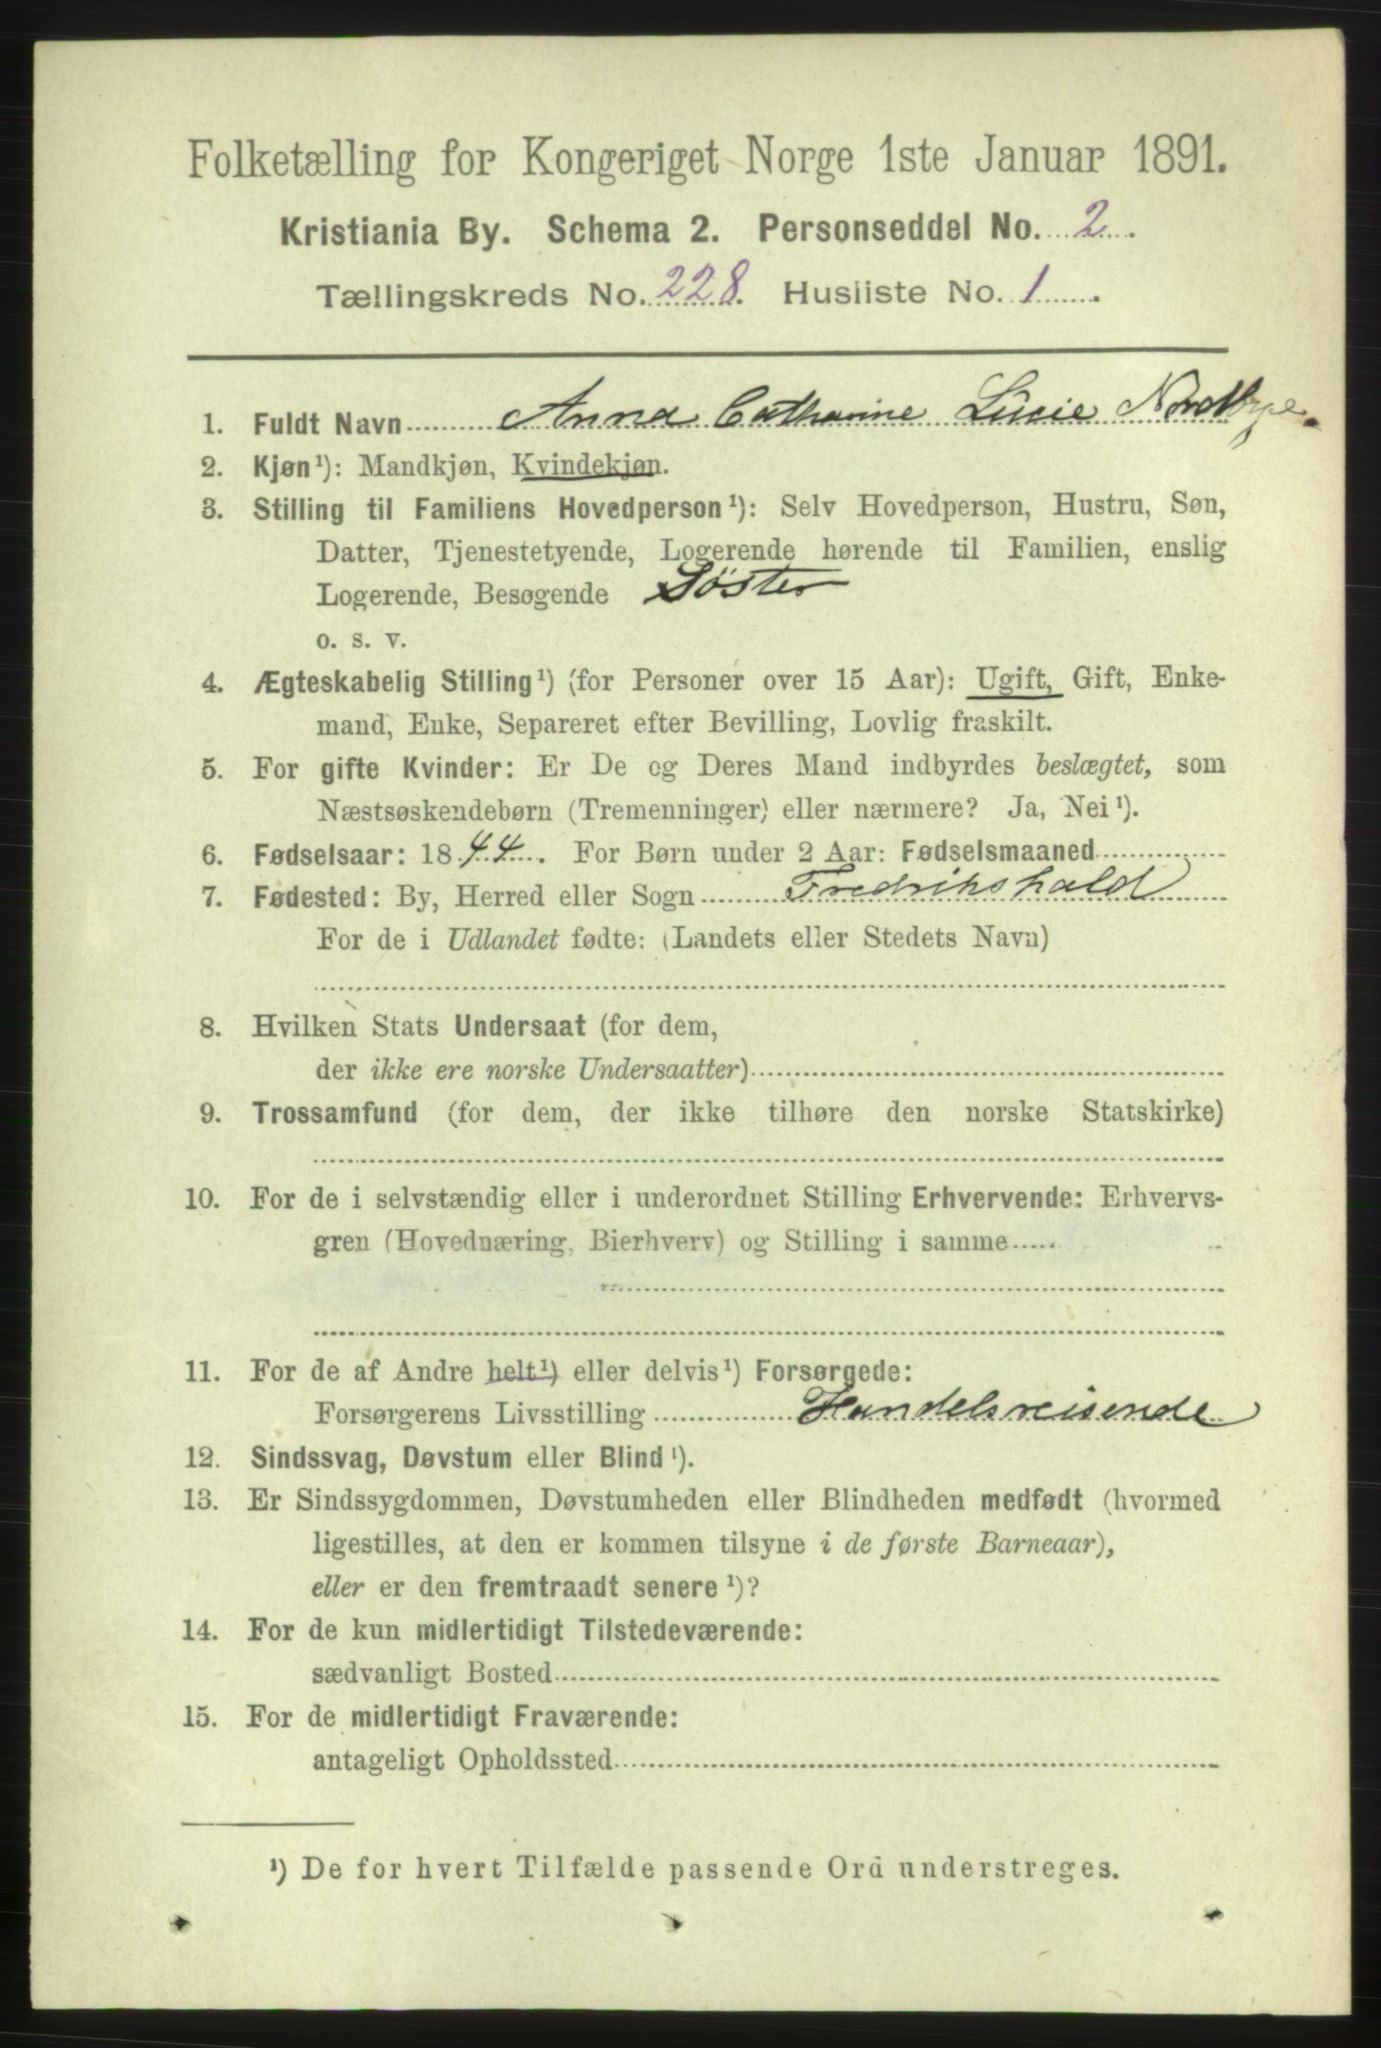 Folketælling for Kongeriget Norge 1ste Januar 1891.
Kristiania By. Schema 2. Personseddel No. 2.
Tællingskreds No. 228. Husliste No. 1.
1. Fuldt Navn Anna Catharine Lucie Nordbye.
2. Kjøn¹): Mandkjøn, Kvindekjøn.
3. Stilling til Familiens Hovedperson¹): Selv Hovedperson, Hustru, Søn,
Datter, Tjenestetyende, Logerende hørende til Familien, enslig
Logerende, Besøgende Söster
o. s. v.
4. Ægteskabelig Stilling¹) (for Personer over 15 Aar): Ugift, Gift, Enke-
mand, Enke, Separeret efter Bevilling, Lovlig fraskilt.
5. For gifte Kvinder: Er De og Deres Mand indbyrdes beslægtet, som
Næstsøskendebørn (Tremenninger) eller nærmere? Ja, Nei¹).
6. Fødselsaar: 1844. For Børn under 2 Aar: Fødselsmaaned
7. Fødested: By, Herred eller Sogn Fredrikshald
For de i Udlandet fødte: (Landets eller Stedets Navn)
8. Hvilken Stats Undersaat (for dem,
der ikke ere norske Undersaatter)
9. Trossamfund (for dem, der ikke tilhøre den norske Statskirke)
10. For de i selvstændig eller i underordnet Stilling Erhvervende: Erhvervs-
gren (Hovednæring, Bierhverv) og Stilling i samme
11. For de af Andre helt¹) eller delvis¹) Forsørgede:
Forsørgerens Livsstilling Handelsreisende
12. Sindssvag, Døvstum eller Blind¹).
13. Er Sindssygdommen, Døvstumheden eller Blindheden medfødt (hvormed
ligestilles, at den er kommen tilsyne i de første Barneaar),
eller er den fremtraadt senere¹)?
14. For de kun midlertidigt Tilstedeværende:
sædvanligt Bosted
15. For de midlertidigt Fraværende:
antageligt Opholdssted
¹) De for hvert Tilfælde passende Ord understreges.